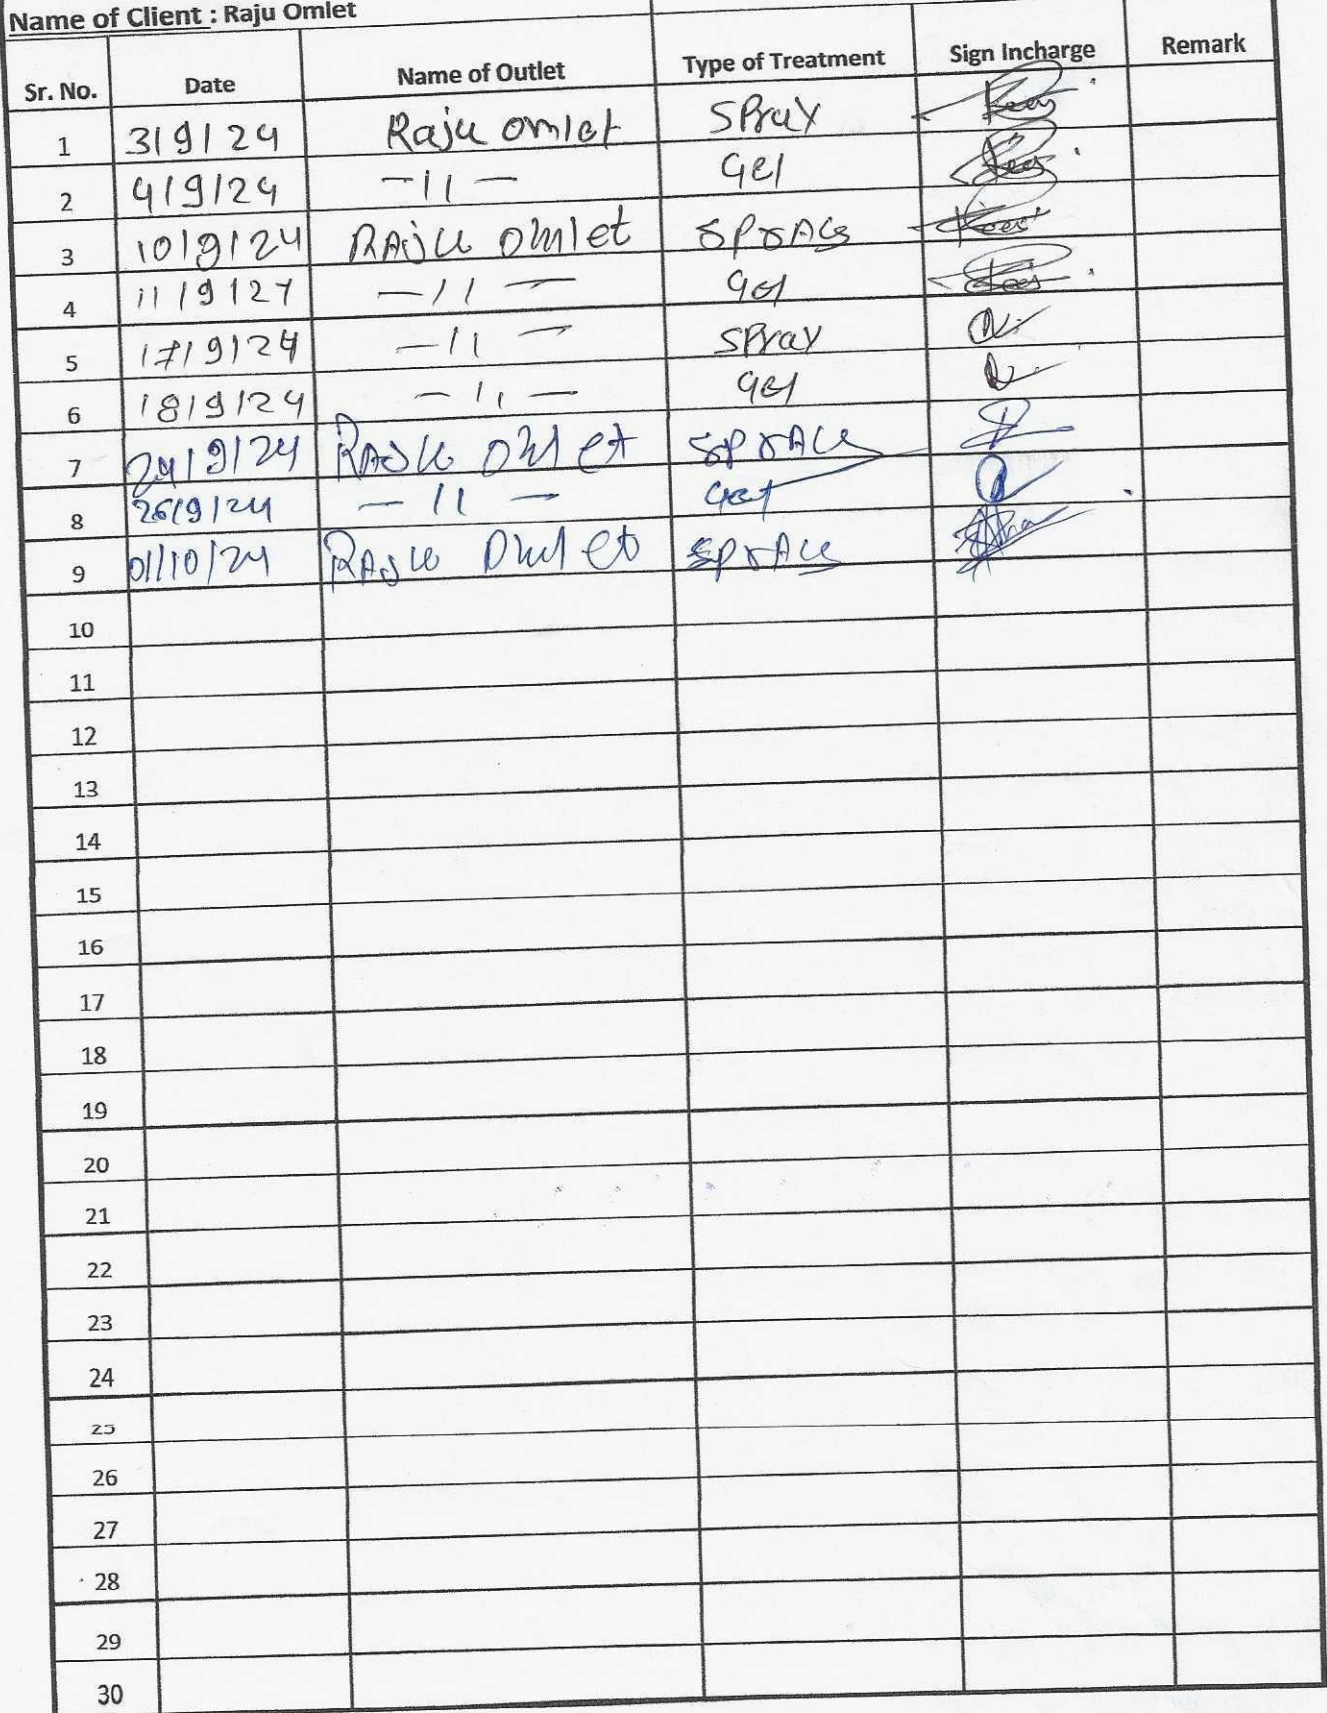 Name of Client : Raju Omlet
Sr. No. Date Name of Outlet Type of Treatment Sign Incharge Remark
1 3/9/24 Raju omlet SPray
2 4/9/24 -11- Gel
3 10/9/24 RAJU Omlet SPRAY
4 11/9/24 -11- Gel
5 17/9/24 -11- SPray
6 18/9/24 -11- Gel
7 24/9/24 RAJU Omlet SPRAY
8 25/9/24 -11- Gel
9 01/10/24 RAJU Omlet SPRAY
10
11
12
13
14
15
16
17
18
19
20
21
22
23
24
25
26
27
28
29
30